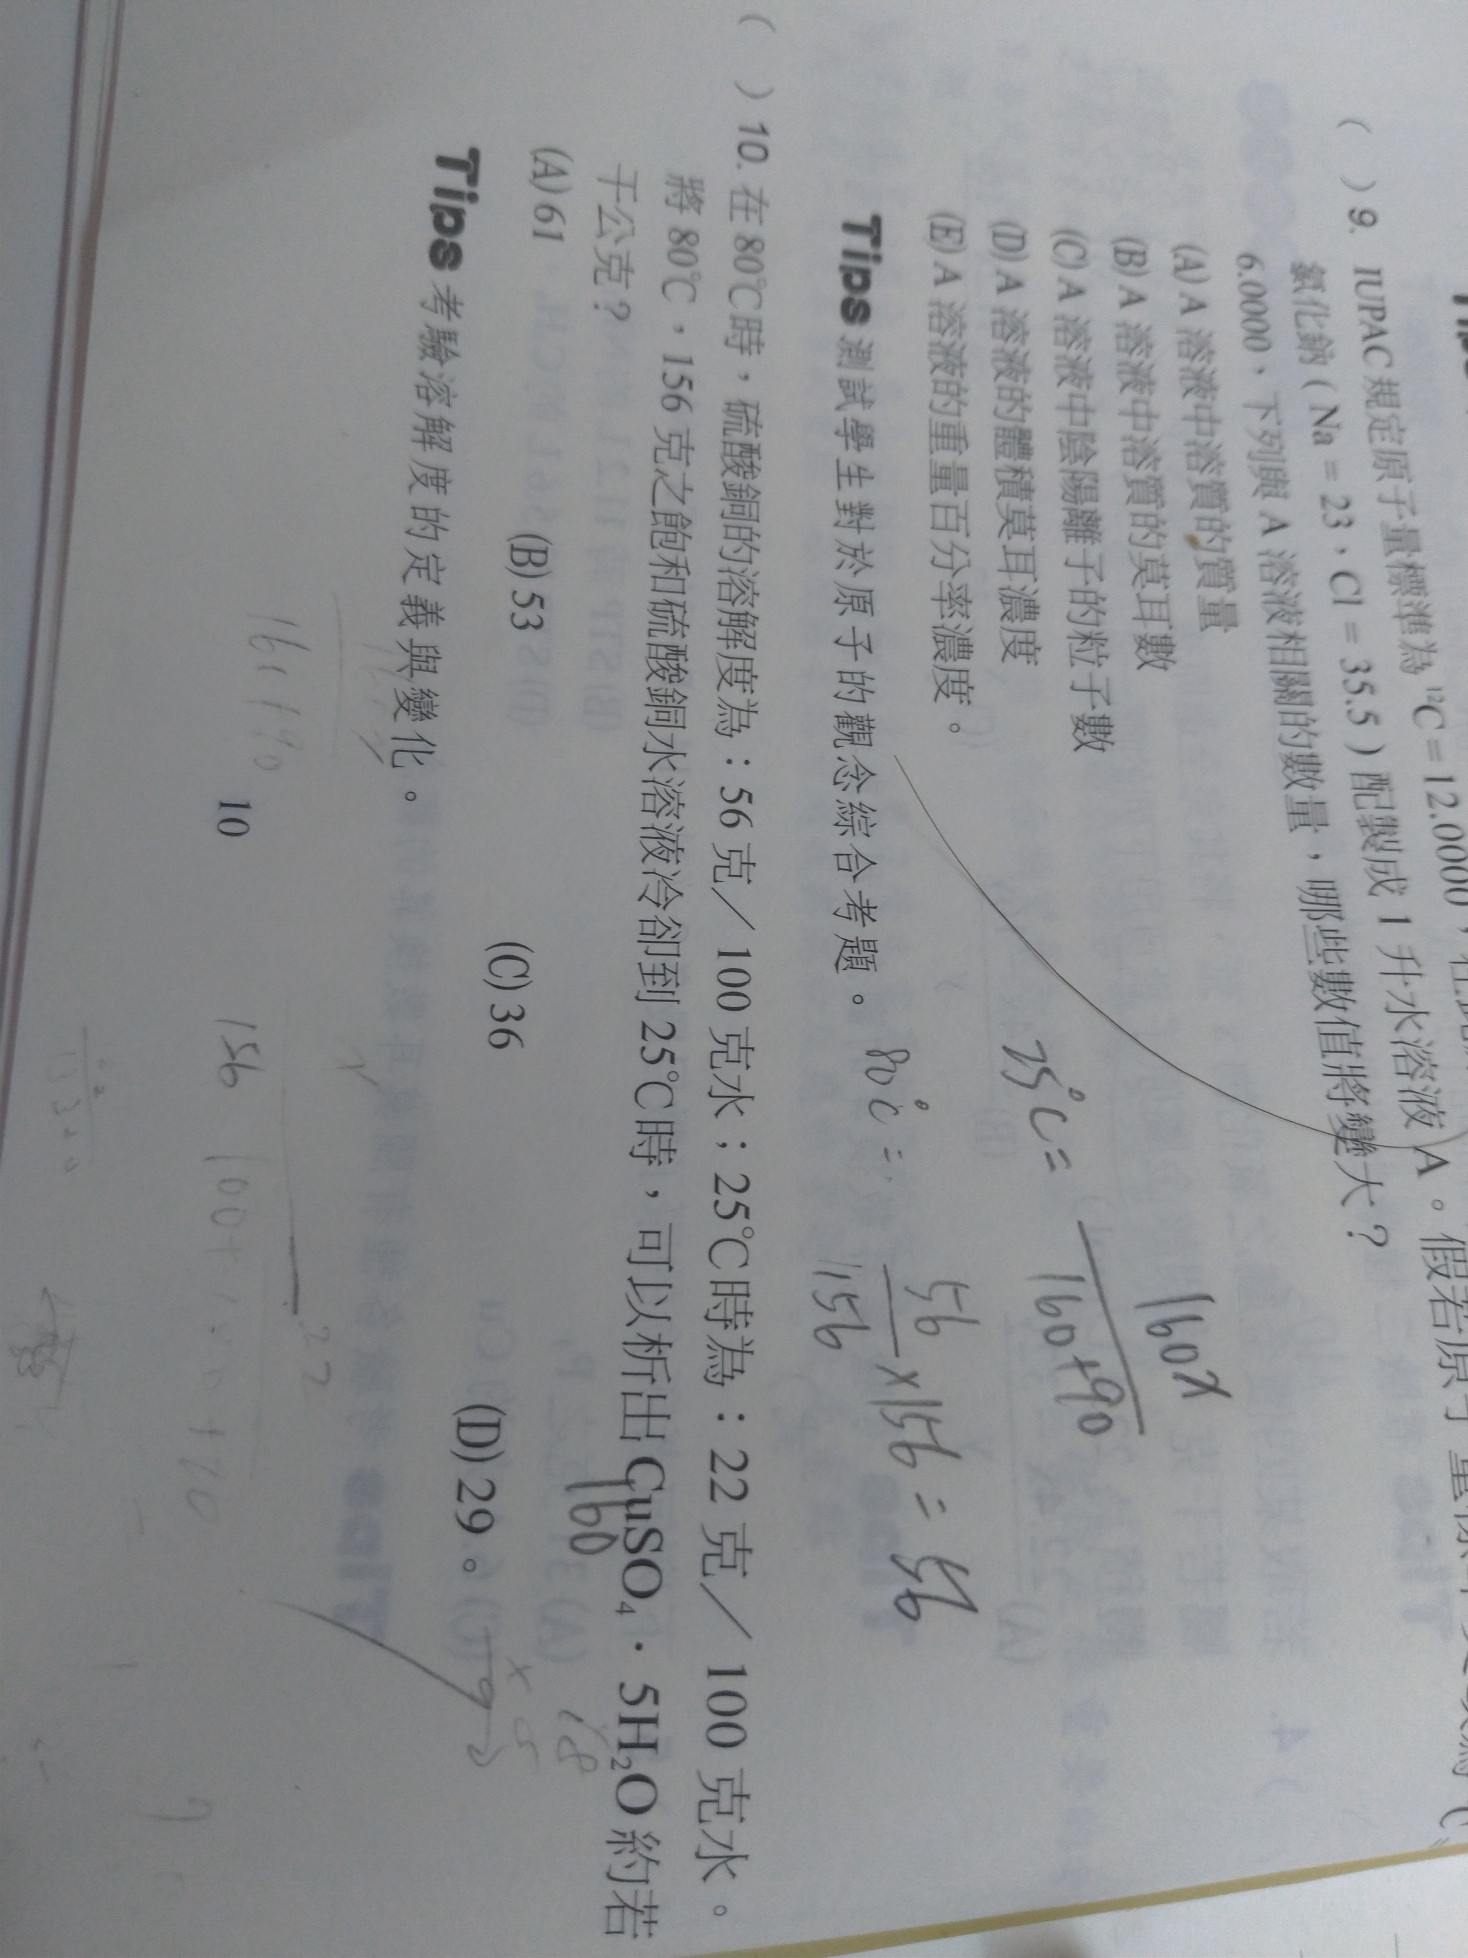 ( )9. IUPAC 規定原子量標準為 ¹²C = 12.0000,
氯化鈉(Na = 23、Cl = 35.5)配製成 1 升水溶液 A。假若原子量標
6.0000、下列與 A 溶液相關的數量,哪些數值將變大?
(A) A 溶液中溶質的質量
(B) A 溶液中溶質的莫耳數
(C) A 溶液中陰陽離子的粒子數
(D) A 溶液的體積莫耳濃度
(E) A 溶液的重量百分率濃度。
Tips 測試學生對於原子的觀念綜合考題。
25°C = 160x / 160+90
80°C = 56/156 × 156 = 56
( )10. 在 80℃時,硫酸銅的溶解度為:56 克/100 克水;25℃時為:22 克/100 克水。
將 80℃,156 克之飽和硫酸銅水溶液冷卻到 25℃時,可以析出 CuSO₄·5H₂O 約若
干公克?
160
18
x 5
(A) 61 (B) 53 (C) 36 (D) 29。
90
Tips 考驗溶解度的定義與變化。
22
160+90
10
156
100+